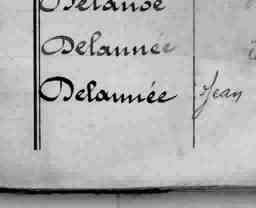 Delande
Delannée
Delannée Jean